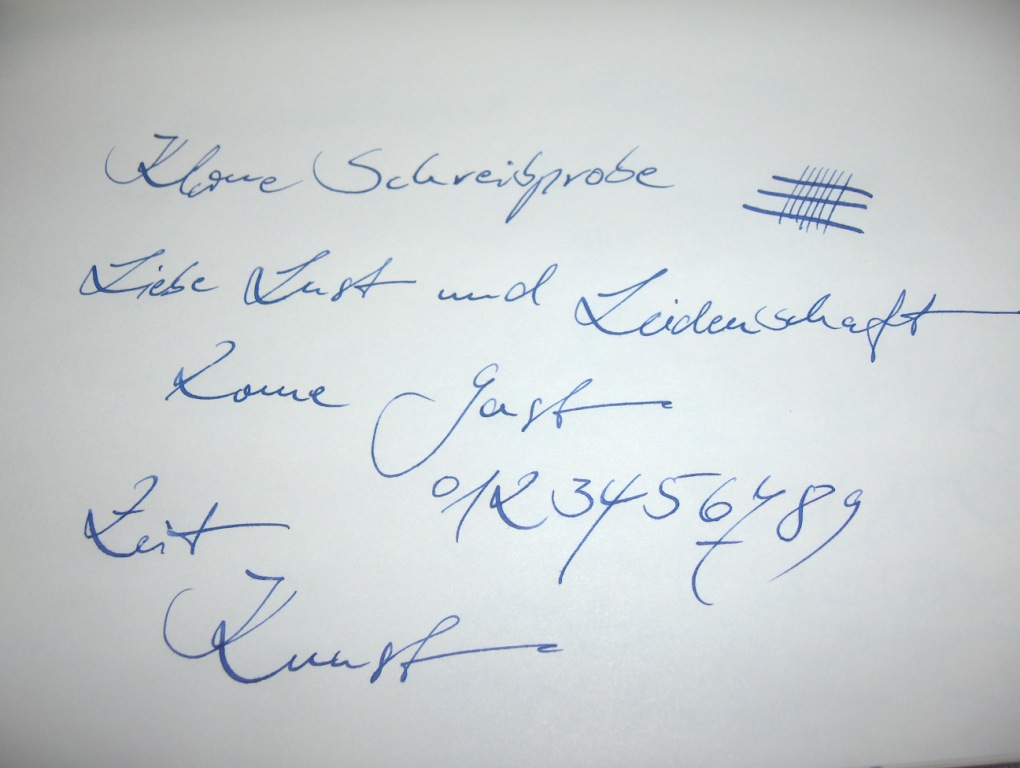 Kleine Schreibprobe
Liebe Lust und Leidenschaft
Gast
0123456789
Zeit
Kunst